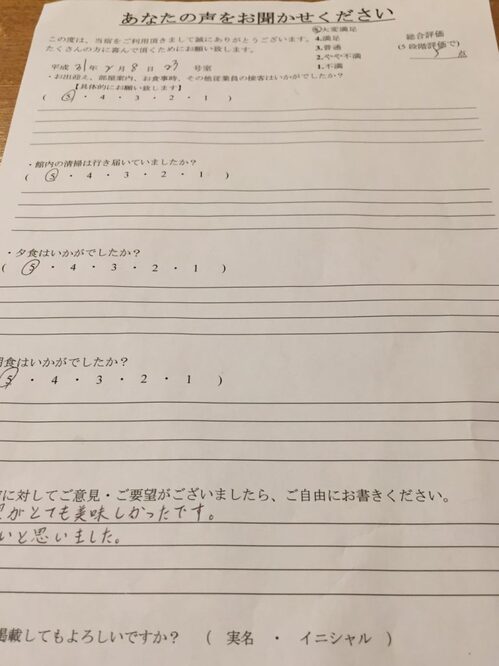 あなたの声をお聞かせください
この度は、当宿をご利用頂きまして誠にありがとうございます。
たくさんの方に喜んで頂くためにお願い致します。
5.大変満足
4.満足
3.普通
2.やや不満
1.不満
総合評価
(5段階評価で)
5 点
平成 31年 月 8日 23 号室
・お出迎え、部屋案内、お食事時、その他従業員の接客はいかがでしたか?
【具体的にお願い致します】
( 5 ・ 4 ・ 3 ・ 2 ・ 1 )
・館内の清掃は行き届いていましたか?
( 5 ・ 4 ・ 3 ・ 2 ・ 1 )
・夕食はいかがでしたか?
( 5 ・ 4 ・ 3 ・ 2 ・ 1 )
食はいかがでしたか?
5 ・ 4 ・ 3 ・ 2 ・ 1 )
に対してご意見・ご要望がございましたら、ご自由にお書きください。
がとても美味しかったです。
いと思いました。
掲載してもよろしいですか? ( 実名 ・ イニシャル )